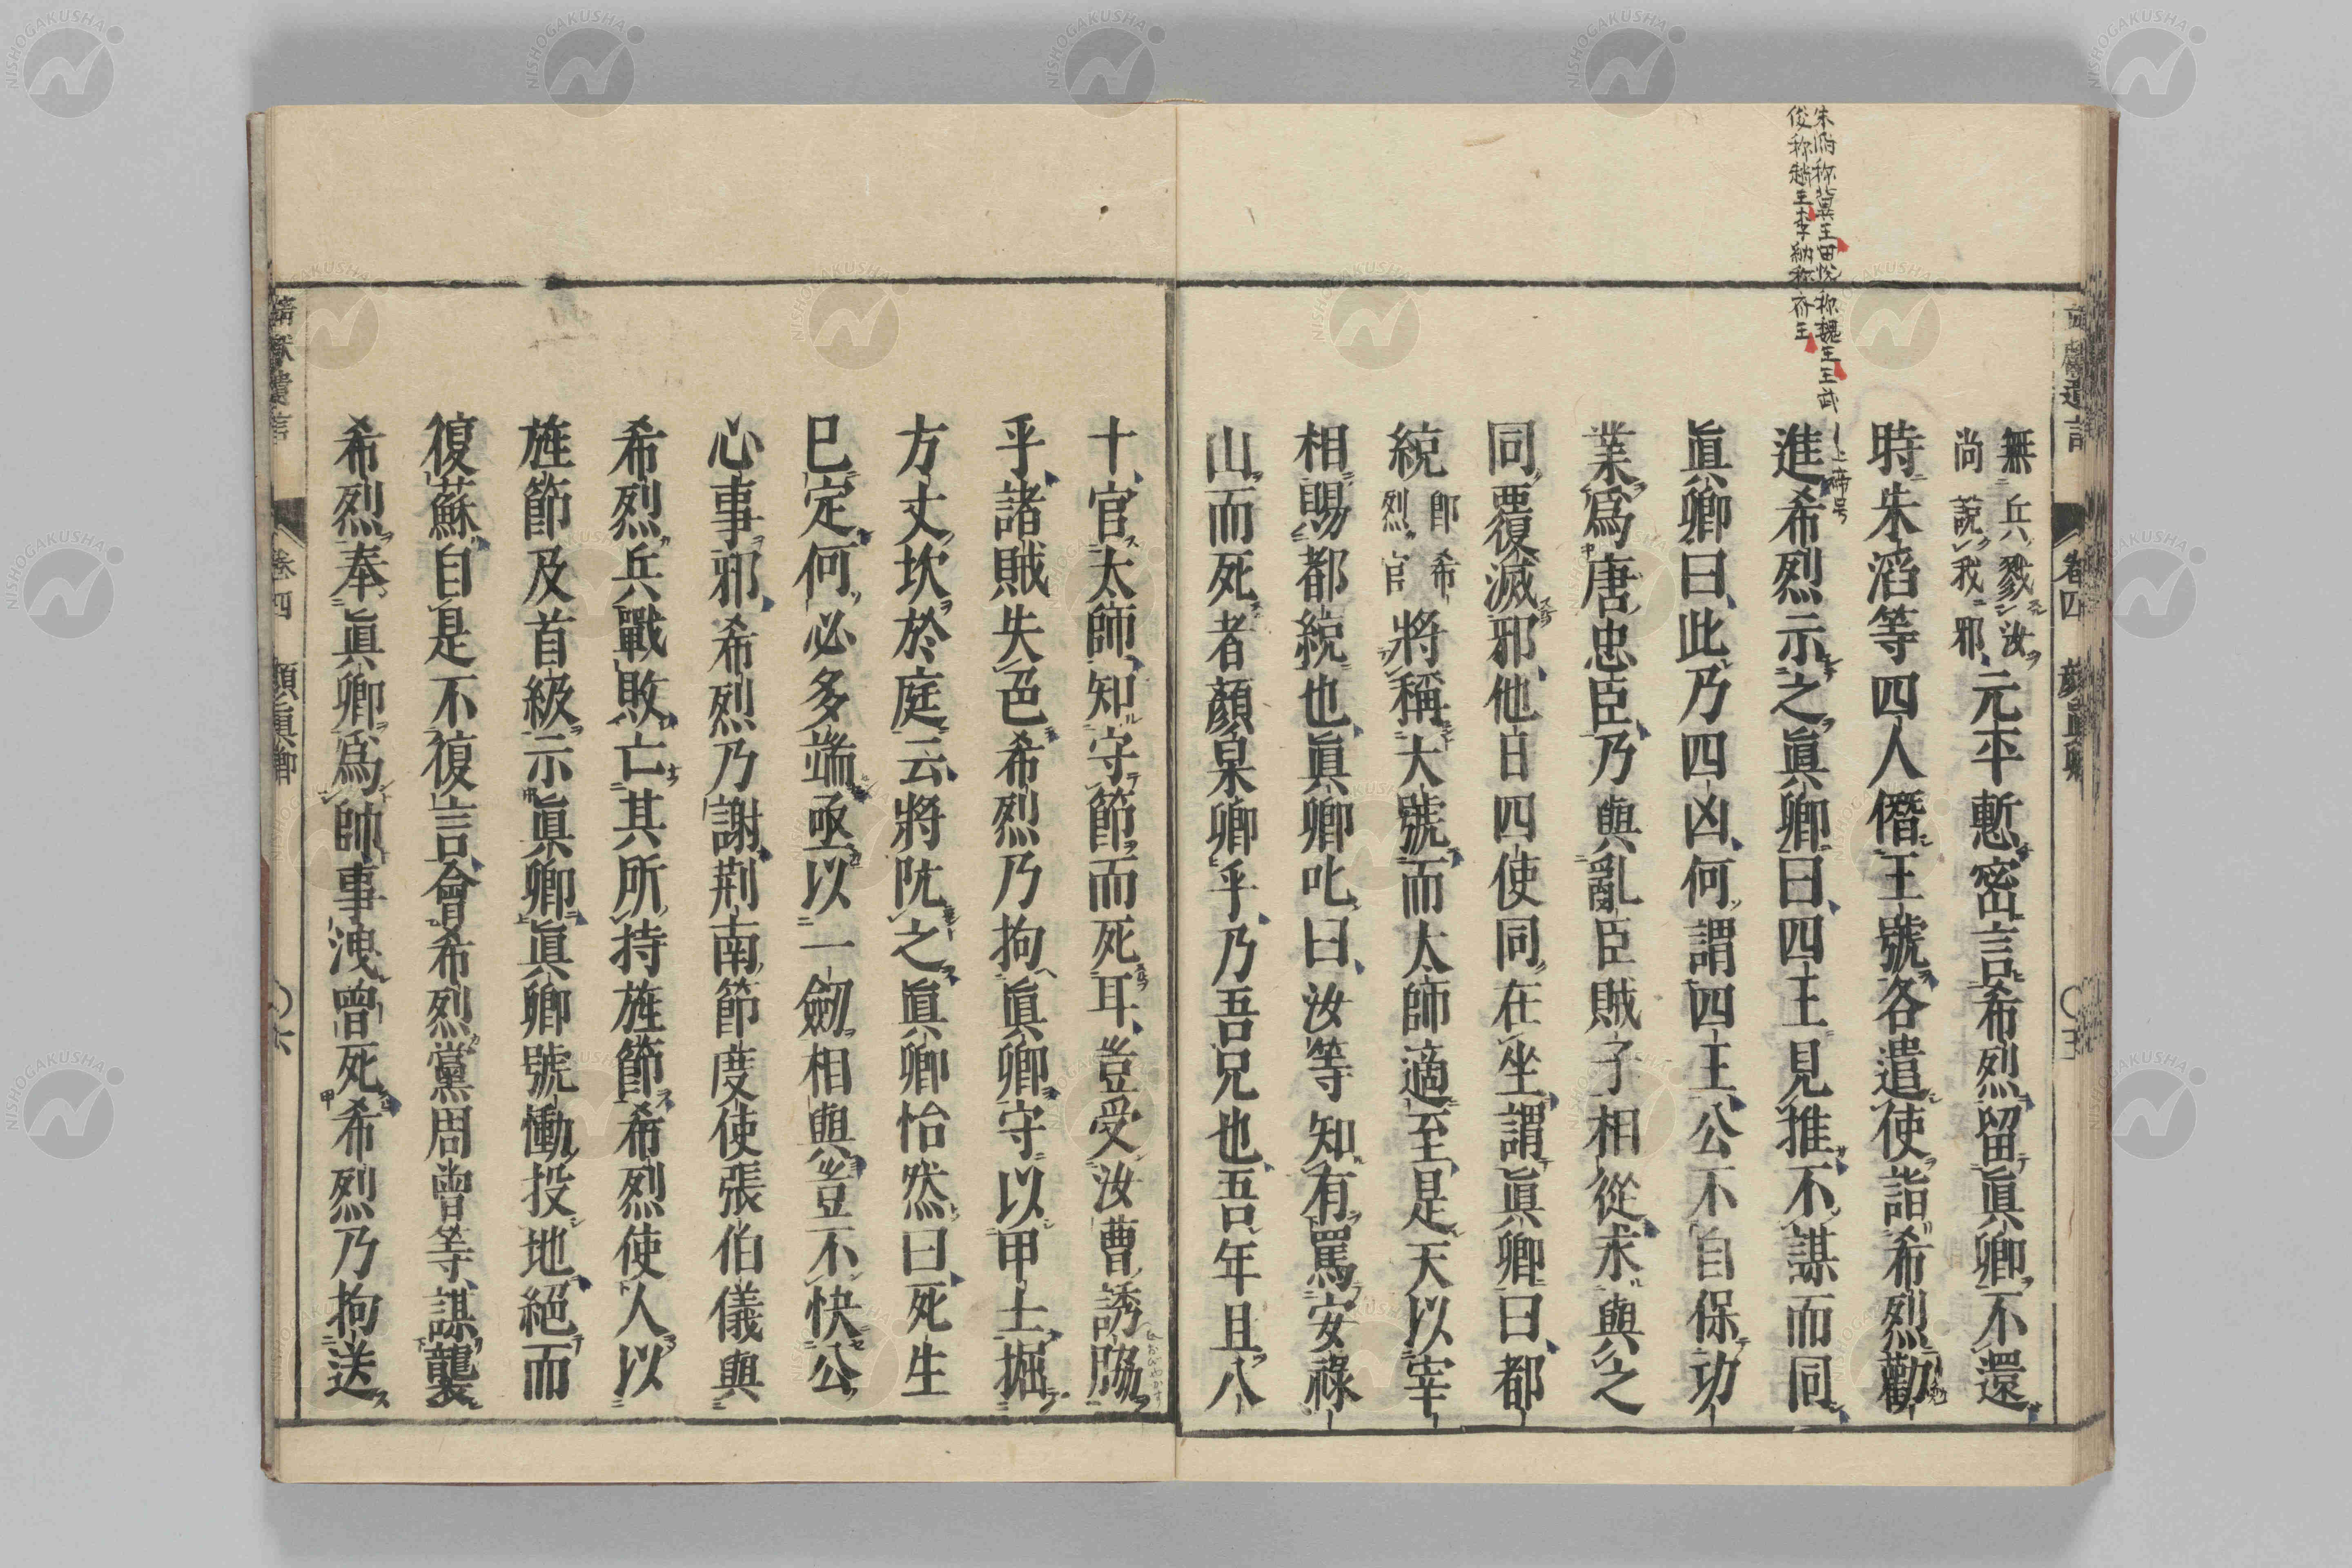 朱滔称冀王田悦称魏王王武
俊称趙王李納称斉王
靖獻遺言 卷四 顏眞卿 〇五
無兵戮汝
尚說我邪
元平慙密言希烈留眞卿不還
時朱滔等四人僭王號各遣使詣希烈勸
進希烈示之眞卿曰四王見推不謀而同
上帝号
眞卿曰此乃四凶何謂四王公不自保功
業爲唐忠臣乃與亂臣賊子相從求與之
同覆滅邪他日四使同在坐謂眞卿曰都
統將稱大號而太師適至是天以宰
卽希
烈官
相賜都統也眞卿叱曰汝等知有罵安祿
山而死者顏杲卿乎乃吾兄也吾年且八
十官太師知守節而死耳豈受汝曹誘脇
乎諸賊失色希烈乃拘眞卿守以甲士掘
方丈坎於庭云將阬之眞卿怡然曰死生
已定何必多端亟以一劒相與豈不快公
心事邪希烈乃謝荆南節度使張伯儀與
希烈兵戰敗亡其所持旌節希烈使人以
旌節及首級示眞卿眞卿號慟投地絕而
復蘇自是不復言會希烈黨周曾等謀襲
希烈奉眞卿爲帥事洩曾死希烈乃拘送
靖獻遺言 卷四 顏眞卿 〇六
NISHOGAKUSHA